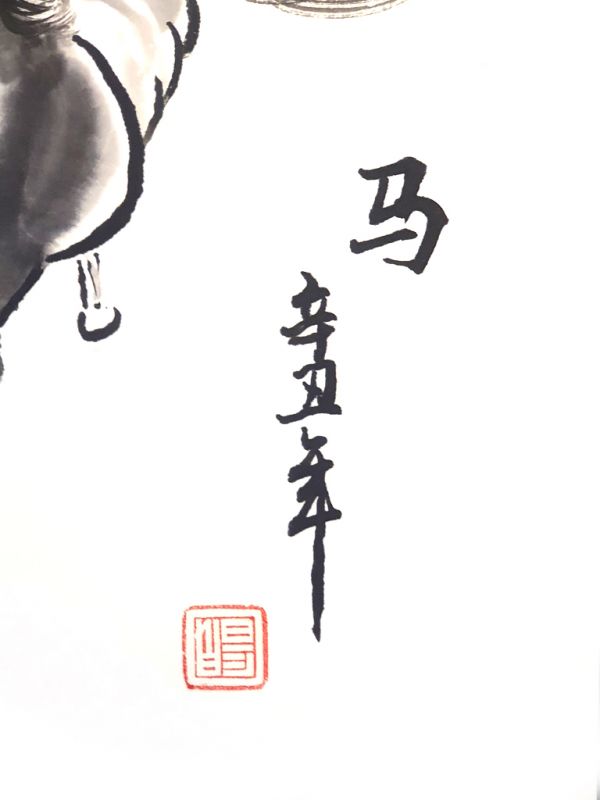 马
辛丑年